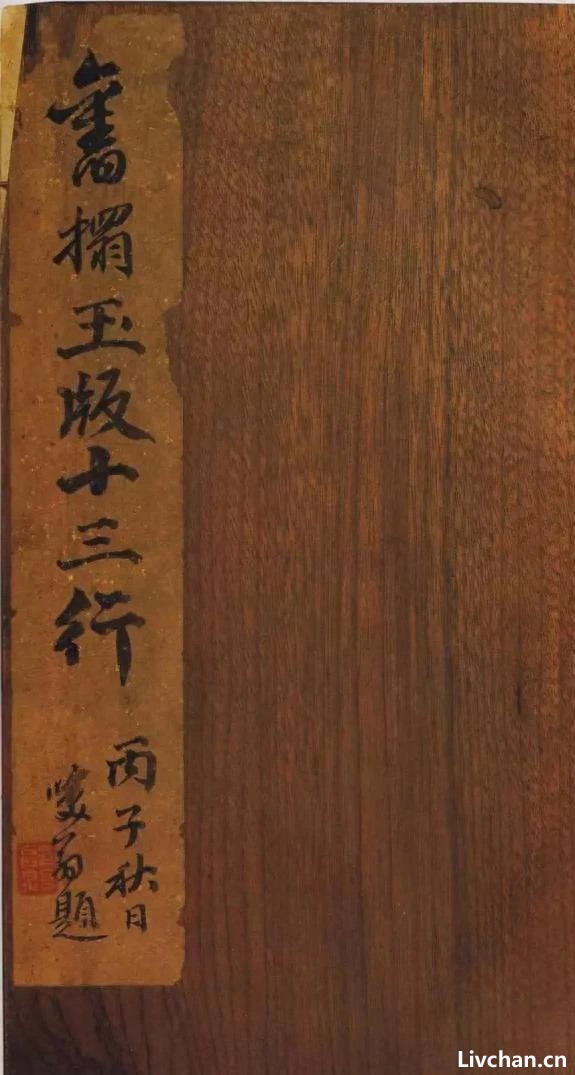 舊搨玉版十三行
丙子秋日
翁題
Livchan.cn